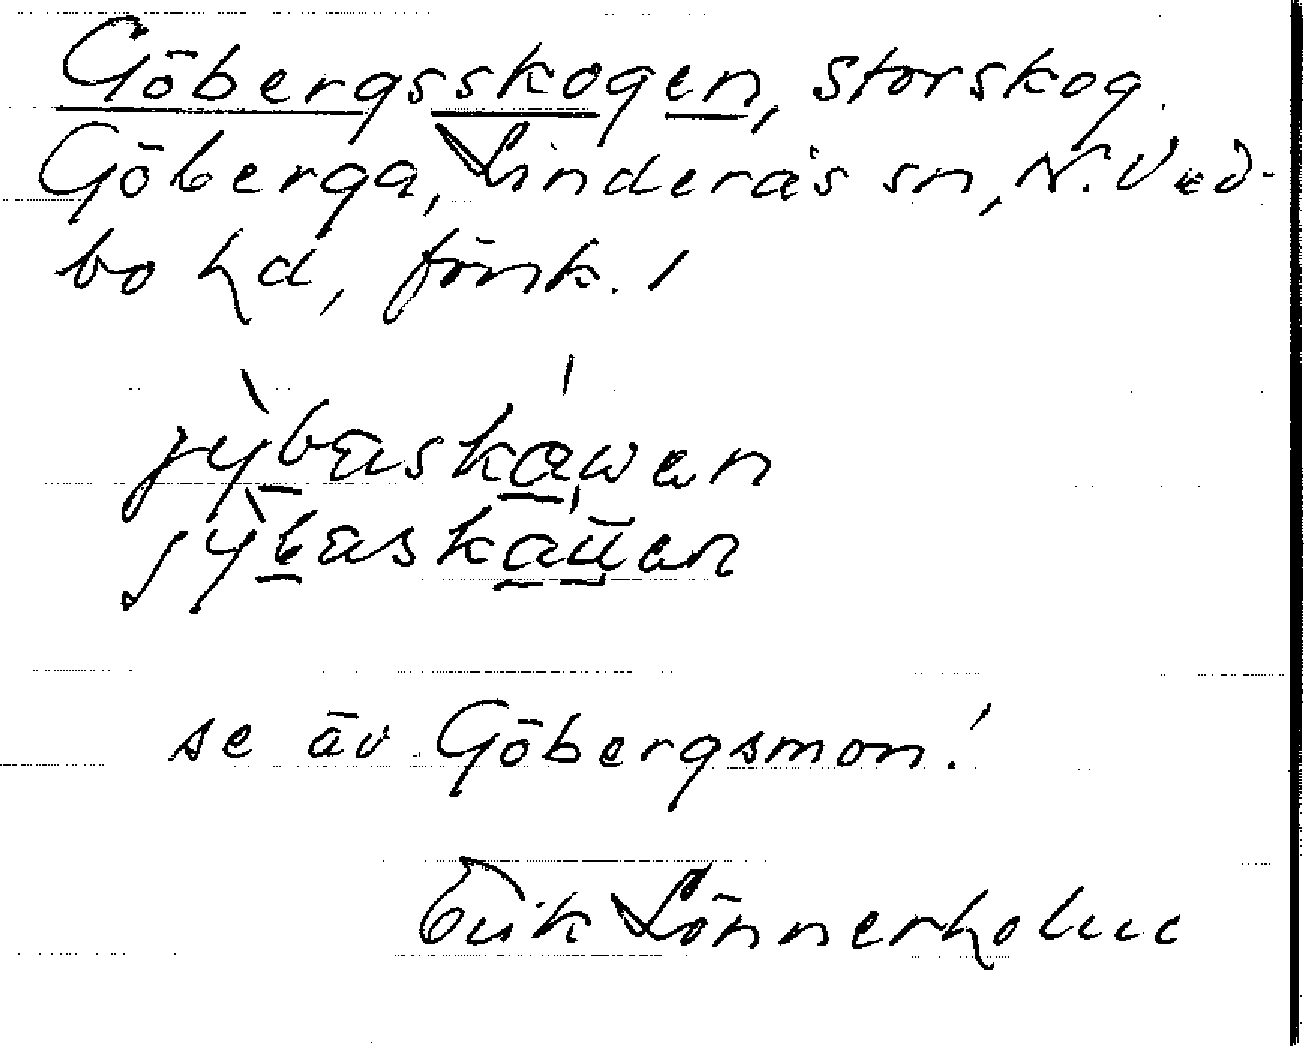 Göbergsskogen, storskog.
Göberga, Linderås sn, N. Ved-
bo hd, Jönk. l
jỳbaskáwen
jỳbaskáuen
se äv. Göbergsmon!
Erik Lönnerholm